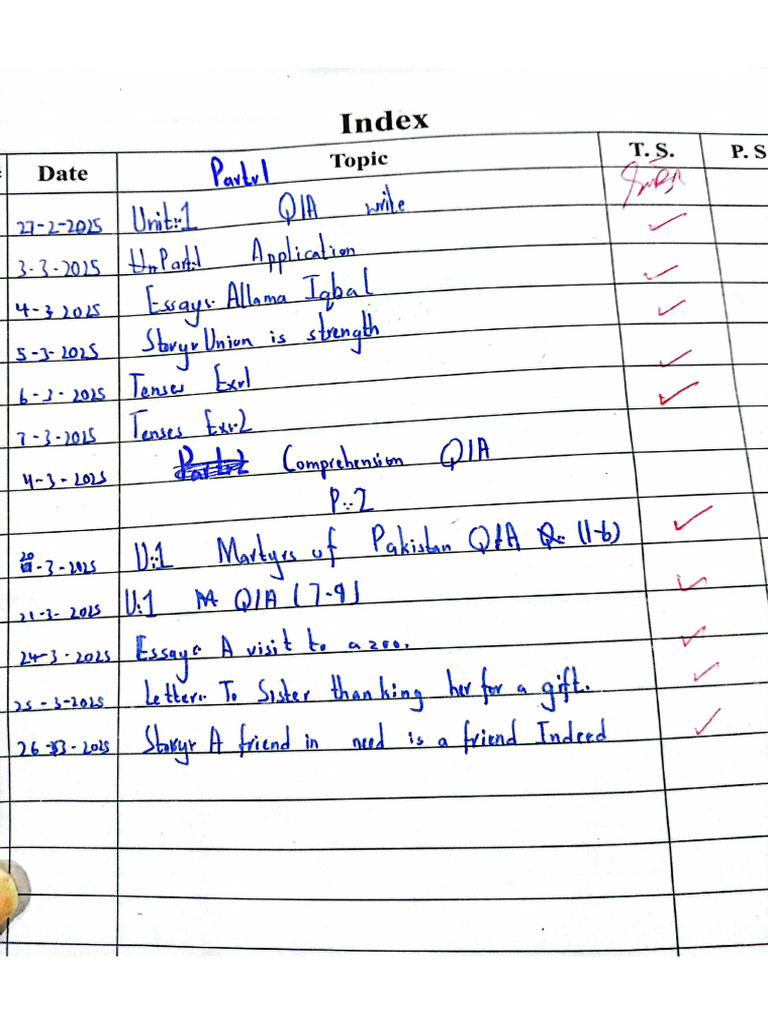 Index
Date Topic T. S. P. S
Part:1
27-2-2025 Unit:1 Q/A write
3-3-2025 Application
4-3 2025 Essay: Allama Iqbal
5-3-2025 Story: Union is strength
6-3-2025 Tenses Ex:1
7-3-2025 Tenses Ex:2
4-3-2025 Comprehension Q/A
P:2
20-3-2025 U:1 Martyrs of Pakistan Q/A Q: (1-6)
21-3-2025 U:1 Q/A (7-9)
24-3-2025 Essay: A visit to a zoo.
25-3-2025 Letter: To Sister thanking her for a gift.
26-3-2025 Story: A friend in need is a friend Indeed